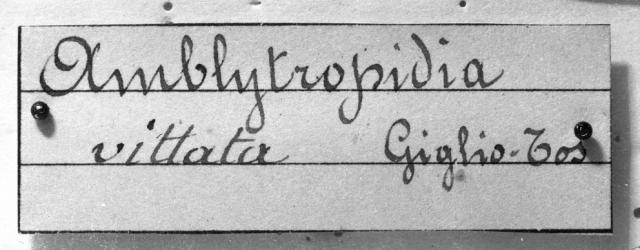 Amblytropidia
vittata Giglio-Tos